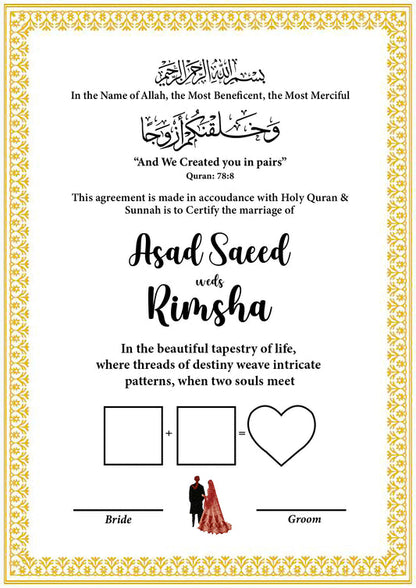 بسم الله الرحمن الرحيم
In the Name of Allah, the Most Beneficent, the Most Merciful
وخلقنكم أزوجا
“And We Created you in pairs”
Quran: 78:8
This agreement is made in accoudance with Holy Quran &
Sunnah is to Certify the marriage of
Asad Saeed
weds
Rimsha
In the beautiful tapestry of life,
where threads of destiny weave intricate
patterns, when two souls meet
+ =
Bride Groom